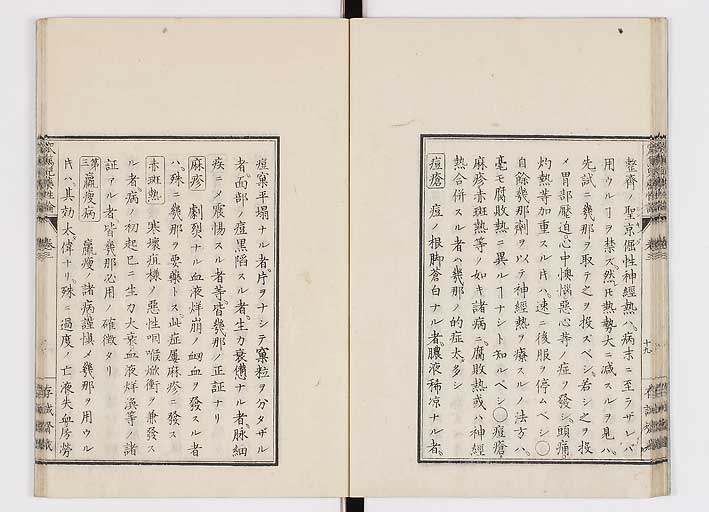 整齊ノ聖京倔性神經熱ハ、病末ニ至ラザレバ
用ウルヿヲ禁ズ然𪜈熱勢大ニ減スルヲ見ハ、
先試ニ幾那ヲ取テ之ヲ投ズベシ、若シ之ヲ投
メ胃部壓迫心中懊憹惡心等ノ症ヲ發シ頭痛
灼熱等加重スル𪜈ハ、速ニ後服ヲ停ムベシ◯
自餘幾那劑ヲ以テ神經熱ヲ療スルノ法方ハ、
毫モ腐敗熱ニ異ルヿナシト知ルベシ◯痘瘡
麻疹赤斑熱等ノ如キ諸病ニ、腐敗熱或ハ神經
熱合併スル者ハ幾那ノ的症太多シ
痘瘡 痘ノ根脚蒼白ナル者、膿液稀凉ナル者、
痘窠平塌ナル者、片ヲナシテ窠粒ヲ分タザル
者、面部ノ痘黒陷スル者、生力衰憊ナル者、脉細
疾ニメ震惕スル者等、皆幾那ノ正証ナリ
麻疹 劇烈ナル血液烊崩ノ衂血ヲ發スル者
ハ、殊ニ幾那ヲ要藥トス此症屢麻疹ニ發ス
赤斑熱 寒壞疽様ノ惡性咽喉焮衝ヲ兼發ス
ル者、病ノ初起已ニ生力大衰血液烊渙等ノ諸
証アル者、皆幾那必用ノ確徴タリ
第三 羸瘦病 羸瘦ノ諸病謹慎メ幾那ヲ用ウル
𪜈ハ、其効大偉ナリ、殊ニ過度ノ亡液失血房勞
卷三
十九